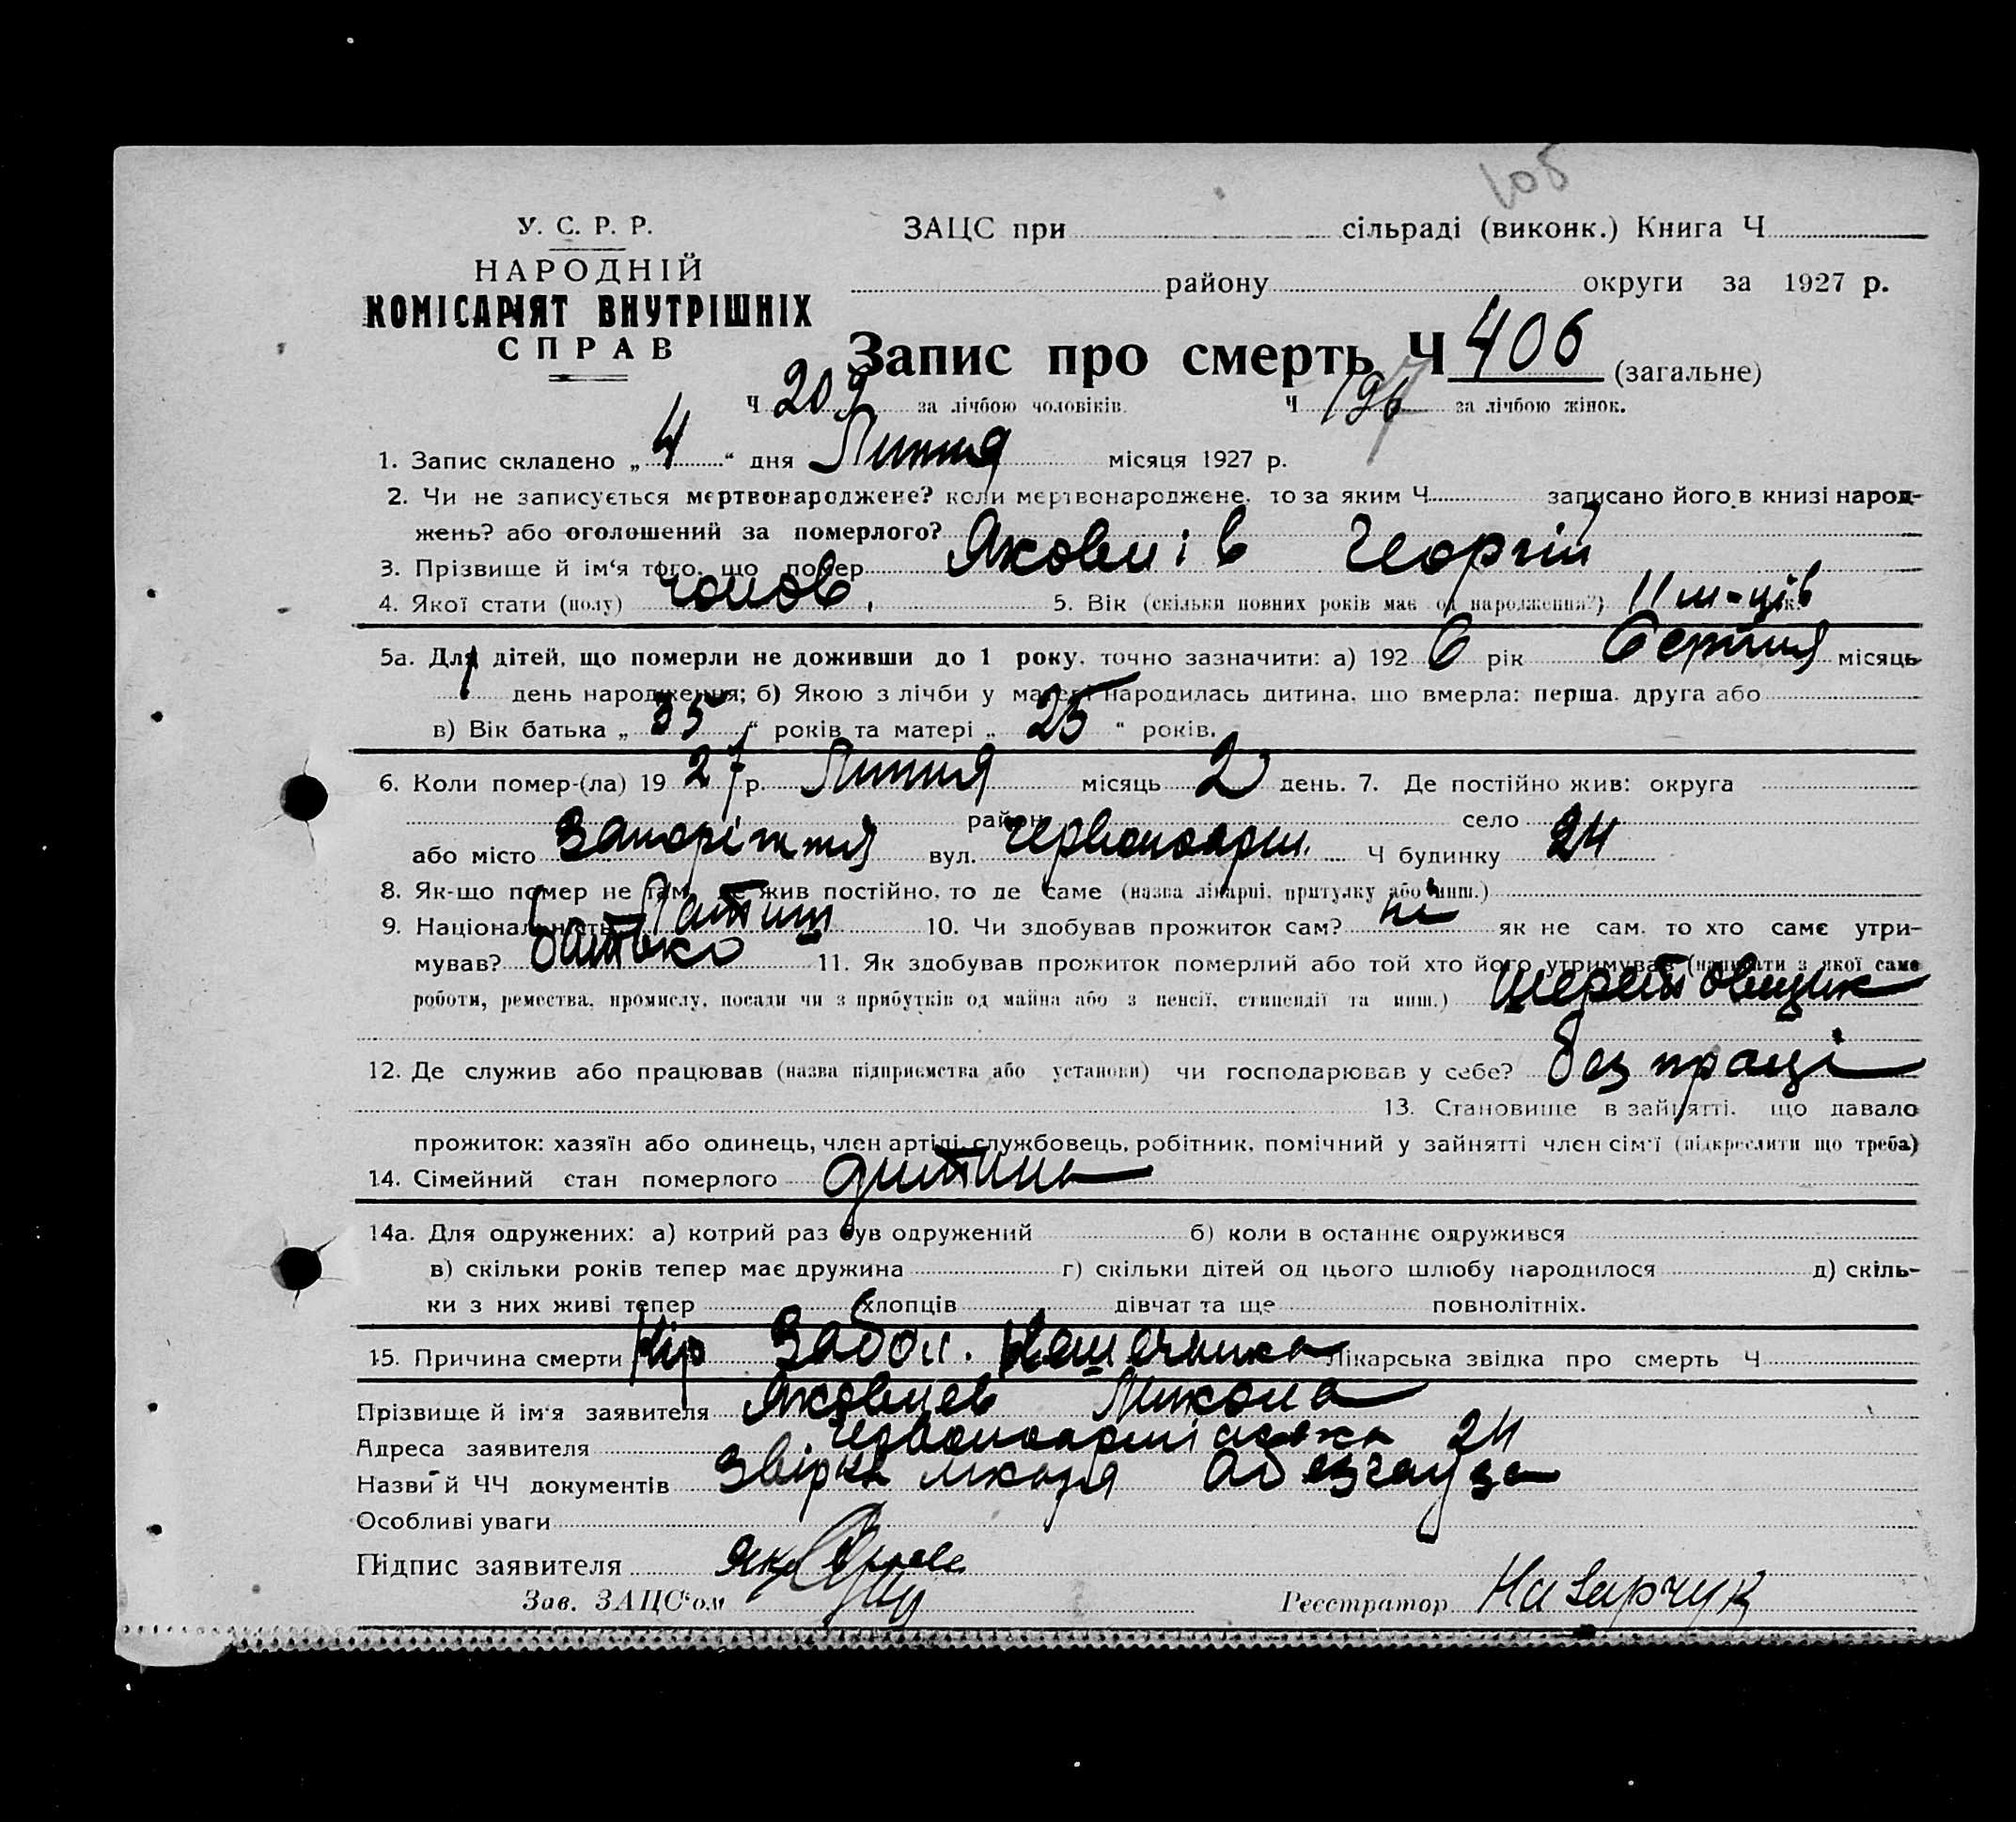 105
У. С. Р. Р.
НАРОДНІЙ
КОМІСАРІЯТ ВНУТРІШНІХ
СПРАВ
ЗАЦС при сільраді (виконк.) Книга Ч
району округи за 1927 р.
Запис про смерть Ч 406 (загальне)
Ч 209 за лічбою чоловіків. Ч 196 7 за лічбою жінок.
1. Запис складено „ 4 “ дня Липня місяця 1927 р.
2. Чи не записується мертвонароджене? коли мертвонароджене, то за яким Ч записано його в книзі народ-
жень? або оголошений за померлого?
3. Прізвище й ім'я того, що помер Яковлів Георгій
4. Якої стати (полу) чолов. 5. Вік (скільки повних років має од народження?) 11 м-ців
5а. Для дітей, що померли не доживши до 1 року, точно зазначити: а) 192 6 рік Серпня місяць
1 день народження; б) Якою з лічби у матері народилась дитина, що вмерла: перша, друга або
в) Вік батька „ 35 “ років та матері „ 25 “ років.
6. Коли помер-(ла) 19 27 р. Липня місяць 2 день. 7. Де постійно жив: округа
район село
або місто Запоріжжя вул. Червоноарм. Ч будинку 24
8. Як-що помер не там, де жив постійно, то де саме (назва лікарні, притулку або инш.)
9. Національність Латиш 10. Чи здобував прожиток сам? ні як не сам, то хто саме утри-
мував? батько 11. Як здобував прожиток померлий або той хто його утримував (написати з якої саме
роботи, ремества, промислу, посади чи з прибутків од майна або з пенсії, стипендії та инш.)
12. Де служив або працював (назва підприємства або установи) чи господарював у себе? без праці
13. Становище в зайнятті, що давало
прожиток: хазяїн або одинець, член артілі, службовець, робітник, помічний у зайнятті член сім'ї (підкреслити що треба)
14. Сімейний стан померлого дитина
14а. Для одружених: а) котрий раз був одружений б) коли в останнє одружився
в) скільки років тепер має дружина г) скільки дітей од цього шлюбу народилося д) скіль-
ки з них живі тепер хлопців дівчат та ще повнолітніх.
15. Причина смерти Кір Забол. Кешечника Лікарська звідка про смерть Ч
Прізвище й ім'я заявителя Яковлев Микола
Адреса заявителя Червоноармійська 24
Назви й ЧЧ документів лікаря
Особливі уваги
Підпис заявителя
Зав. ЗАЦС'ом Реєстратор Назарчук